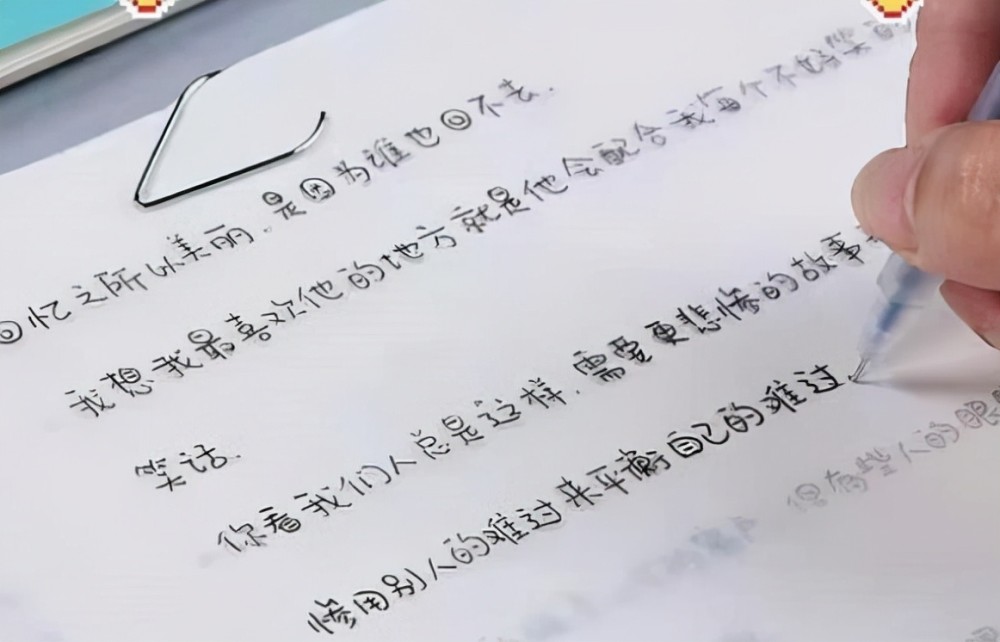 回忆之所以美丽.是因为谁也回不去.
我想我最喜欢他的地方就是他会配合我每个不好笑的
笑话.
你看我们人总是这样.需要更悲惨的故事
惨用别人的难过来平衡自己的难过.
但有些人的眼